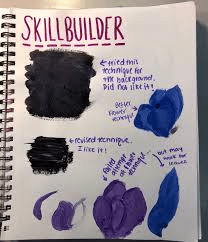 SKILLBUILDER
← tried this
technique for
the background.
Did not like it!
Better
flower
technique
← revised technique.
I like it!
← Failed
attempt
at flower
technique...
... but may
work for
leaves